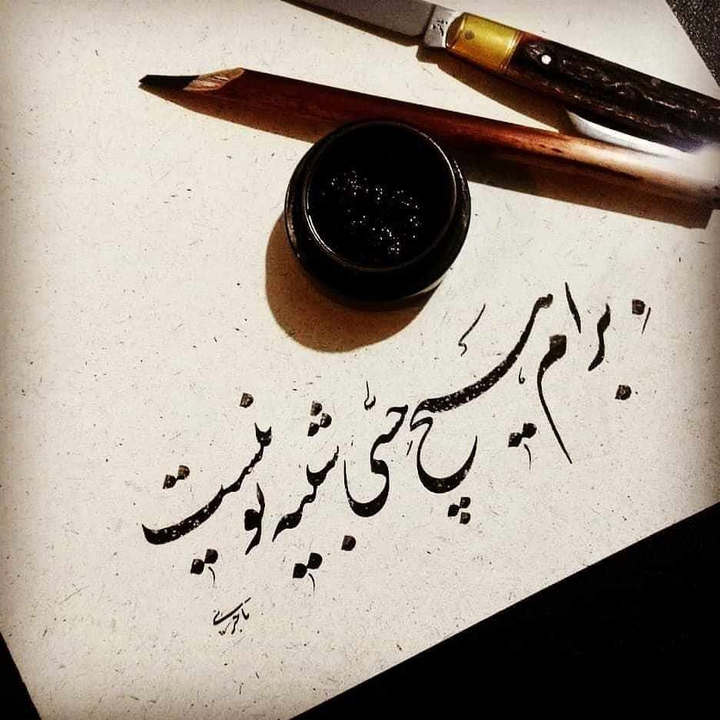 برام هیچ حسی شبیه تو نیست